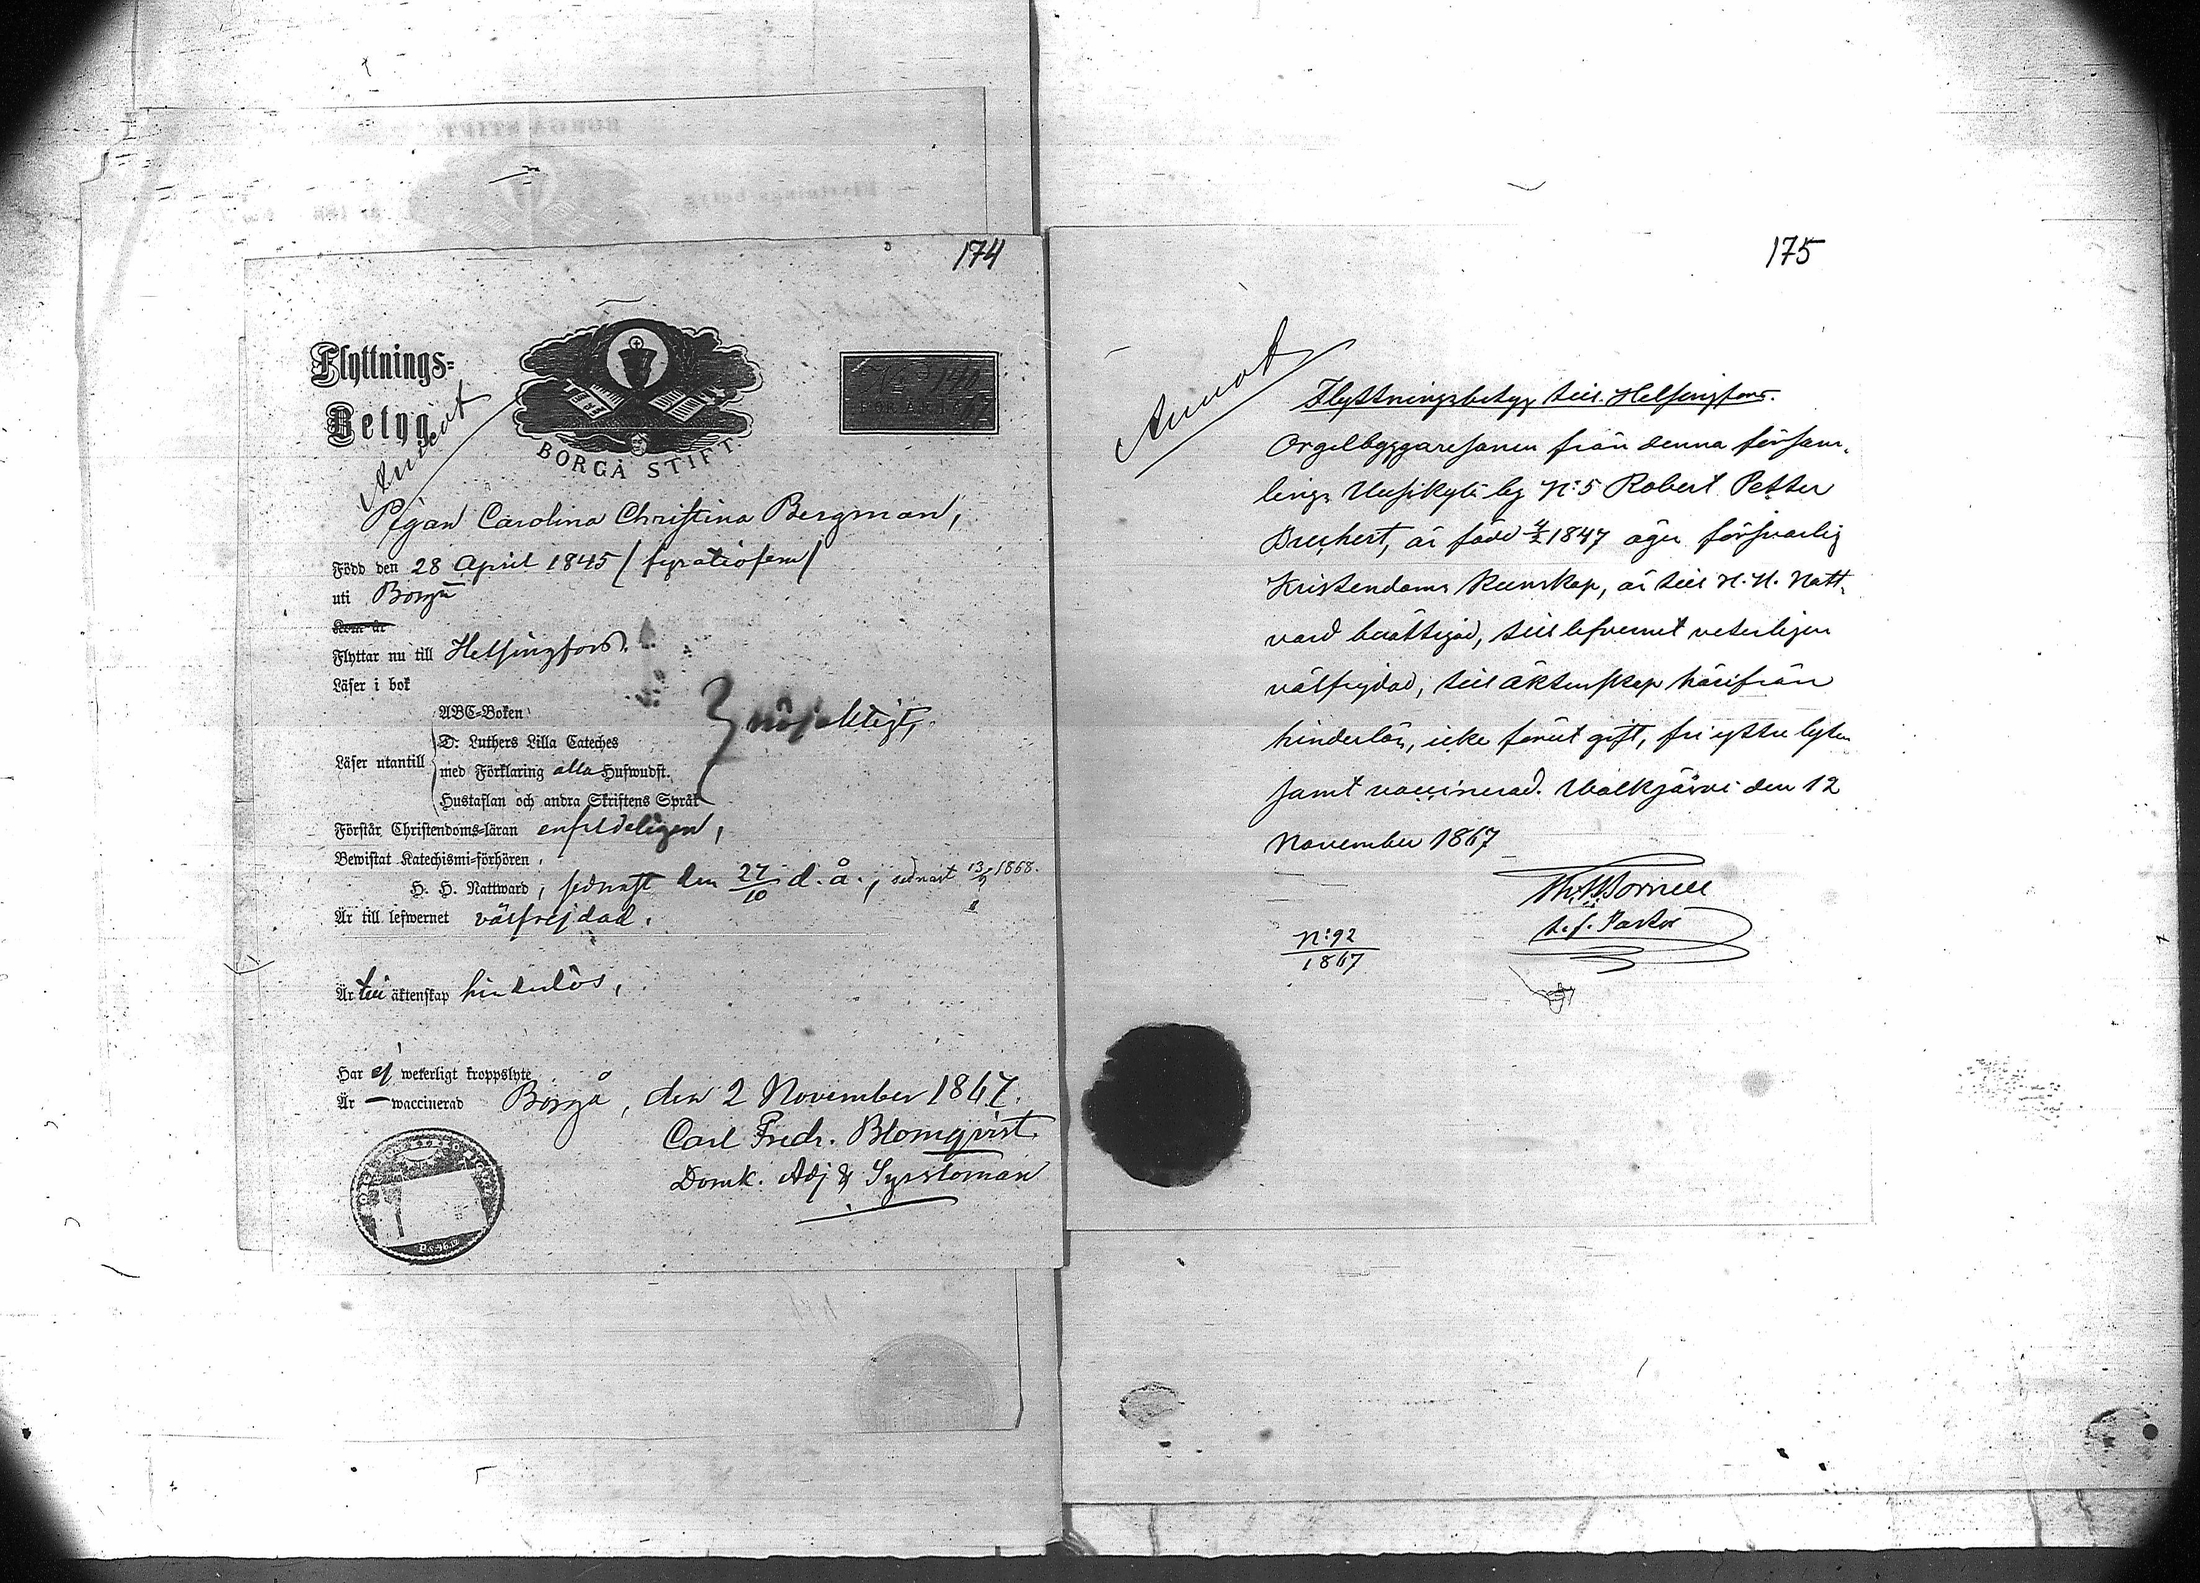 174
Flyttnings-
Betyg
Annot
BORGÅ STIFT
No 140
FÖR ÅR 1867
Pigan Carolina Christina Bergman,
Född den 28 April 1845 / fyratiofem /
uti Borgå
Kom år
Flyttar nu till Helsingfors.
Läser i bok
ABC-Boken
D:r Luthers Lilla Cateches
Läser utantill med Förklaring alla Hufwudst. nöjaktigt,
Hustaflan och andra Skriftens Språk
Förstår Christendoms-läran enfaldeligen,
Bewistat Katechismi-förhören
H. H. Nattward, sednast den 27/10 d. å., sednast 13/9 1868.
Är till lefwernet välfrejdad.
Är till äktenskap hinderlös,
Har ej weterligt kroppslyte
Är — waccinerad Borgå, den 2 November 1867.
Carl Fredr. Blomqvist
Domk. Adj & Syssloman
175
Annot
Flyttningsbetyg till Helsingfors.
Orgelbyggaresonen från denna försam-
lings Uusikylä by N:o 5 Robert Petter
Brechert, är född 4/2 1847 äger försvarlig
Kristendoms kunskap, är till H. H. Natt-
vard berättigad, till lefvernet veterligen
välfrejdad, till äktenskap härifrån
hinderlös, icke förut gift, fri yttre lyten
samt vaccinerad. Walkjärvi den 12
November 1867
t. f. Pastor
N:o 92
1867